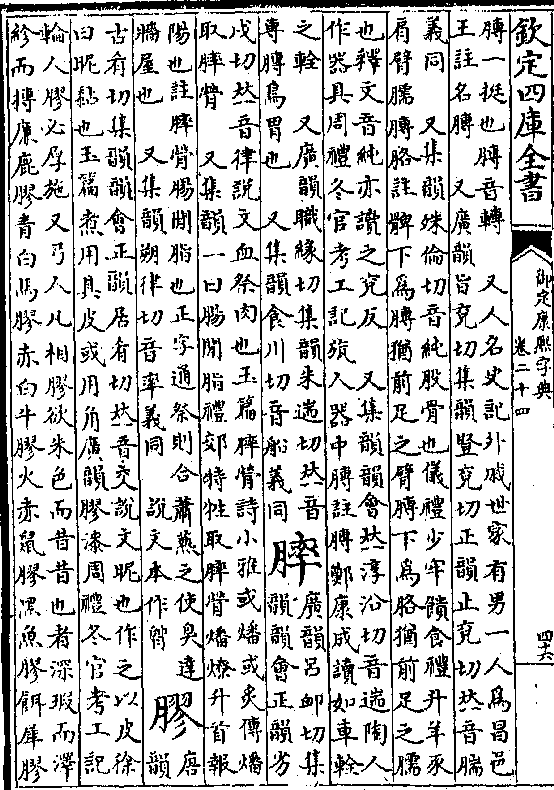 欽定四庫全書
御定康熙字典
卷二十四
四六
膞一挺也膞音轉 又人名史記外戚世家有男一人爲昌邑
王註名膞 又廣韻旨兗切集韻豎兗切正韻止兗切𠀤音腨
義同 又集韻殊倫切音純股骨也儀禮少牢饋食禮升羊豕
肩臂臑膞胳註髀下爲膞猶前足之臂膞下爲胳猶前足之臑
也釋文音純亦讀之兗反 又集韻韻會𠀤淳沿切音遄陶人
作器具周禮冬官考工記旊人器中膞註膞鄭康成讀如車輇
之輇 又廣韻職緣切集韻朱遄切𠀤音
專膞鳥胃也 又集韻食川切音船義同
膟
廣韻呂卹切集
韻韻會正韻劣
戌切𠀤音律說文血祭肉也玉篇膟膋詩小雅或燔或炙傳燔
取膟膋 又集韻一曰腸閒脂禮郊特牲取膟膋燔燎升首報
陽也註膟膋腸閒脂也正字通祭則合蕭爇之使臭達
牆屋也 又集韻朔律切音率義同 說文本作
膠
唐
韻
古肴切集韻韻會正韻居肴切𠀤音交說文昵也作之以皮徐
曰昵黏也玉篇煮用其皮或用角廣韻膠漆周禮冬官考工記
輪人膠必厚施又弓人凡相膠欲朱色而昔昔也者深瑕而澤
紾而摶廉鹿膠青白馬膠赤白牛膠火赤鼠膠黑魚膠餌犀膠